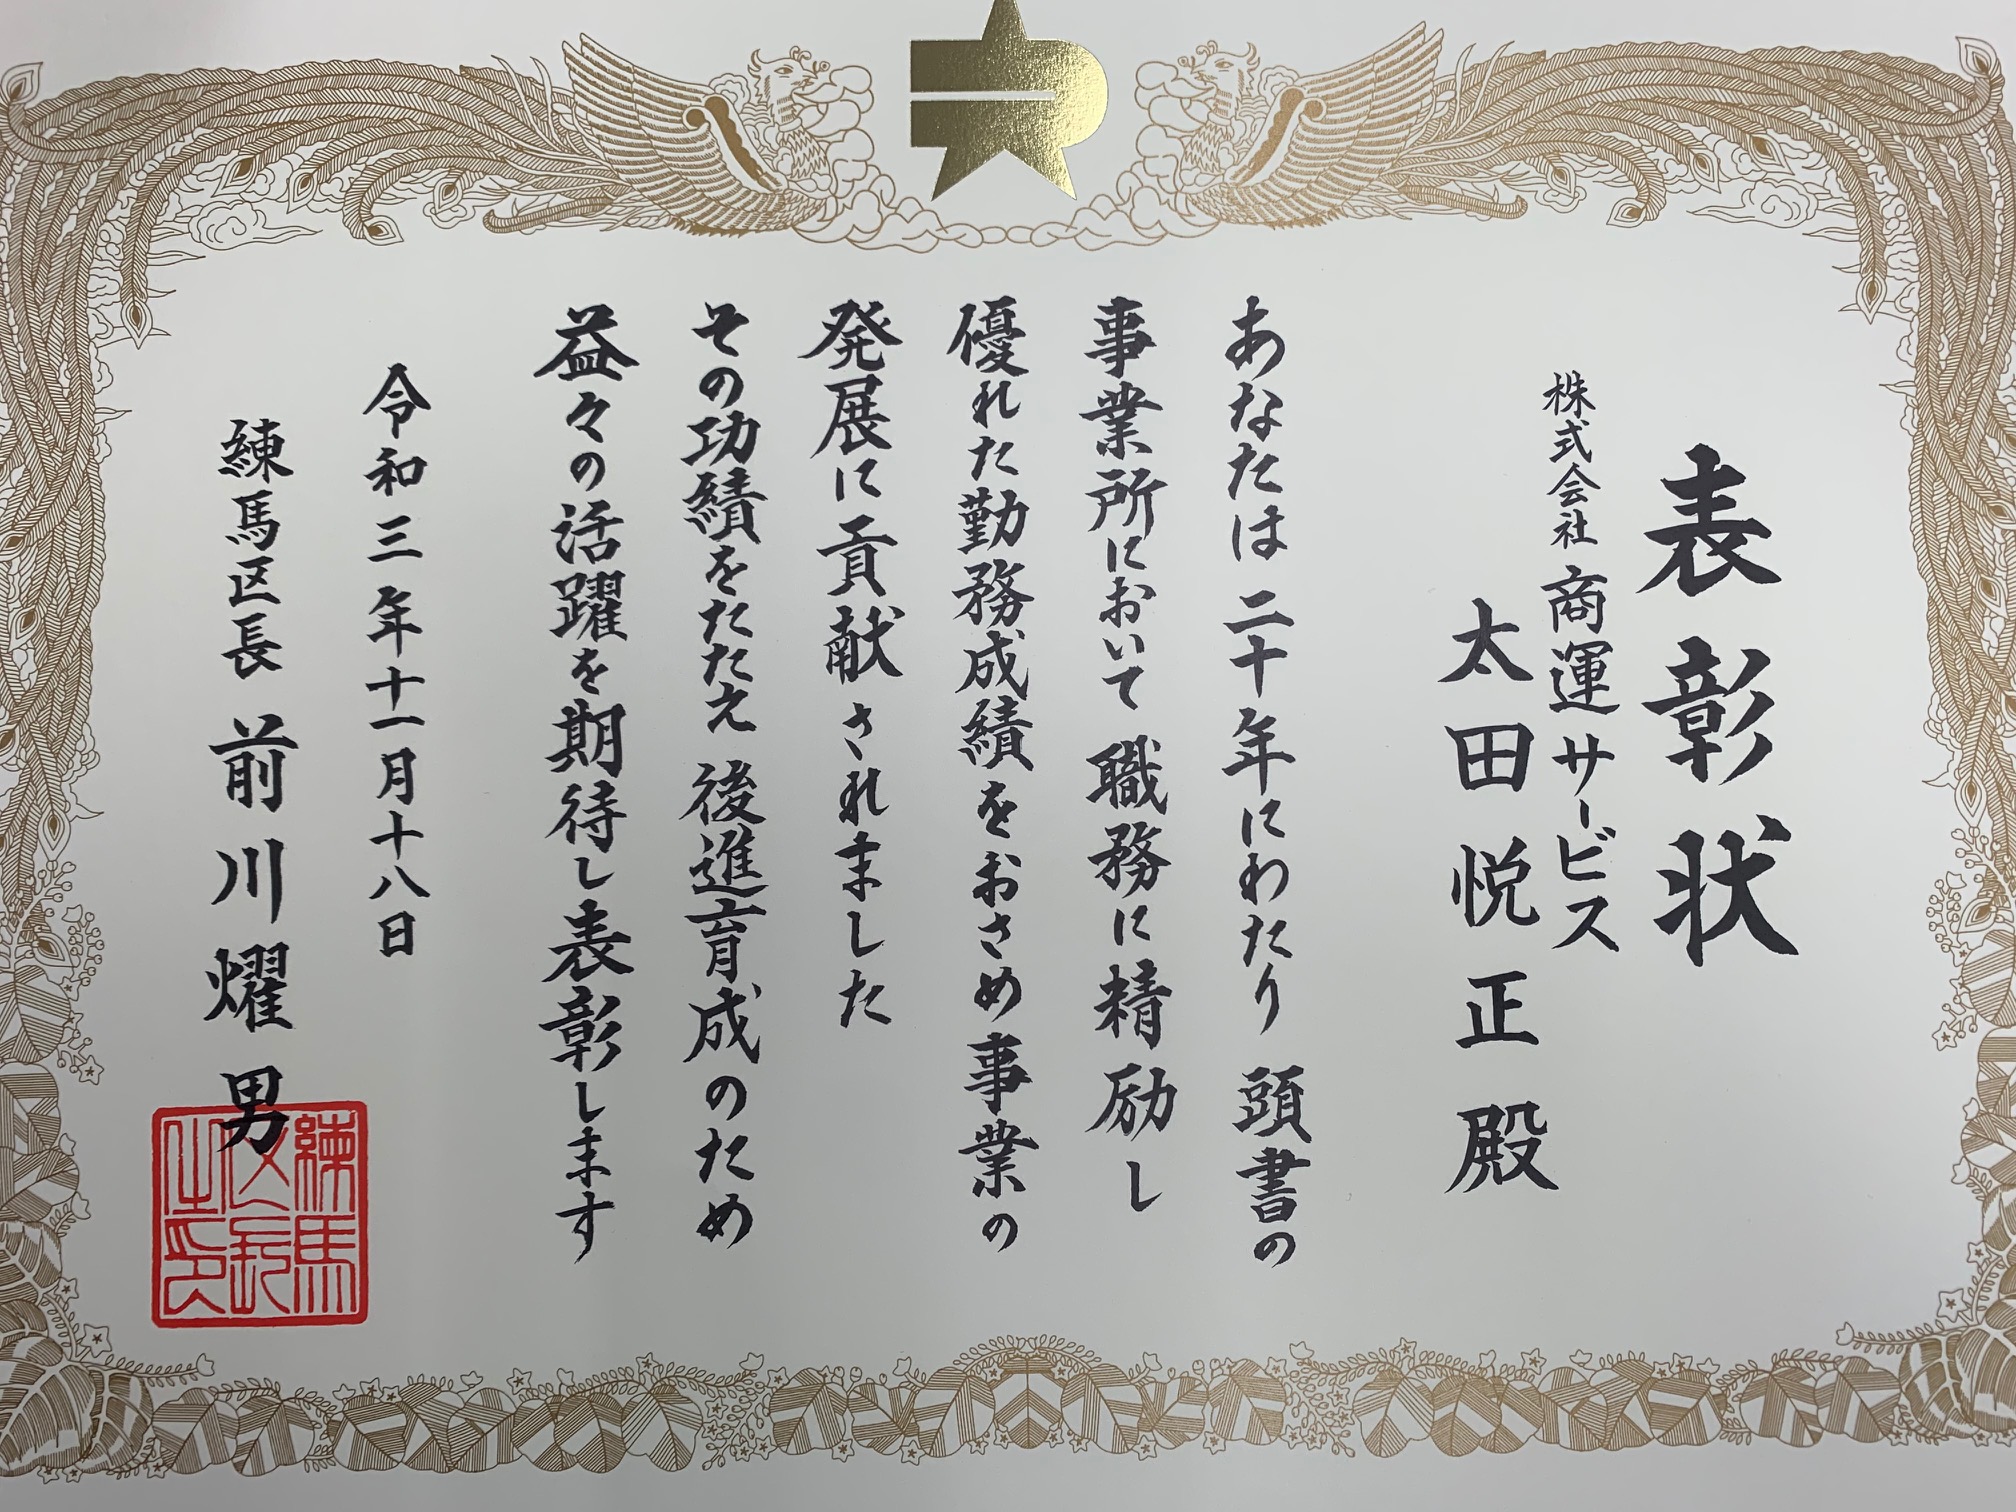 表彰状
株式会社 商運サービス
太田悦正殿
あなたは二十年にわたり 頭書の
事業所において 職務に精励し
優れた勤務成績をおさめ事業の
発展に貢献されました
その功績をたたえ 後進育成のため
益々の活躍を期待し表彰します
令和三年十一月十八日
練馬区長 前川燿男
練馬
区長
之印